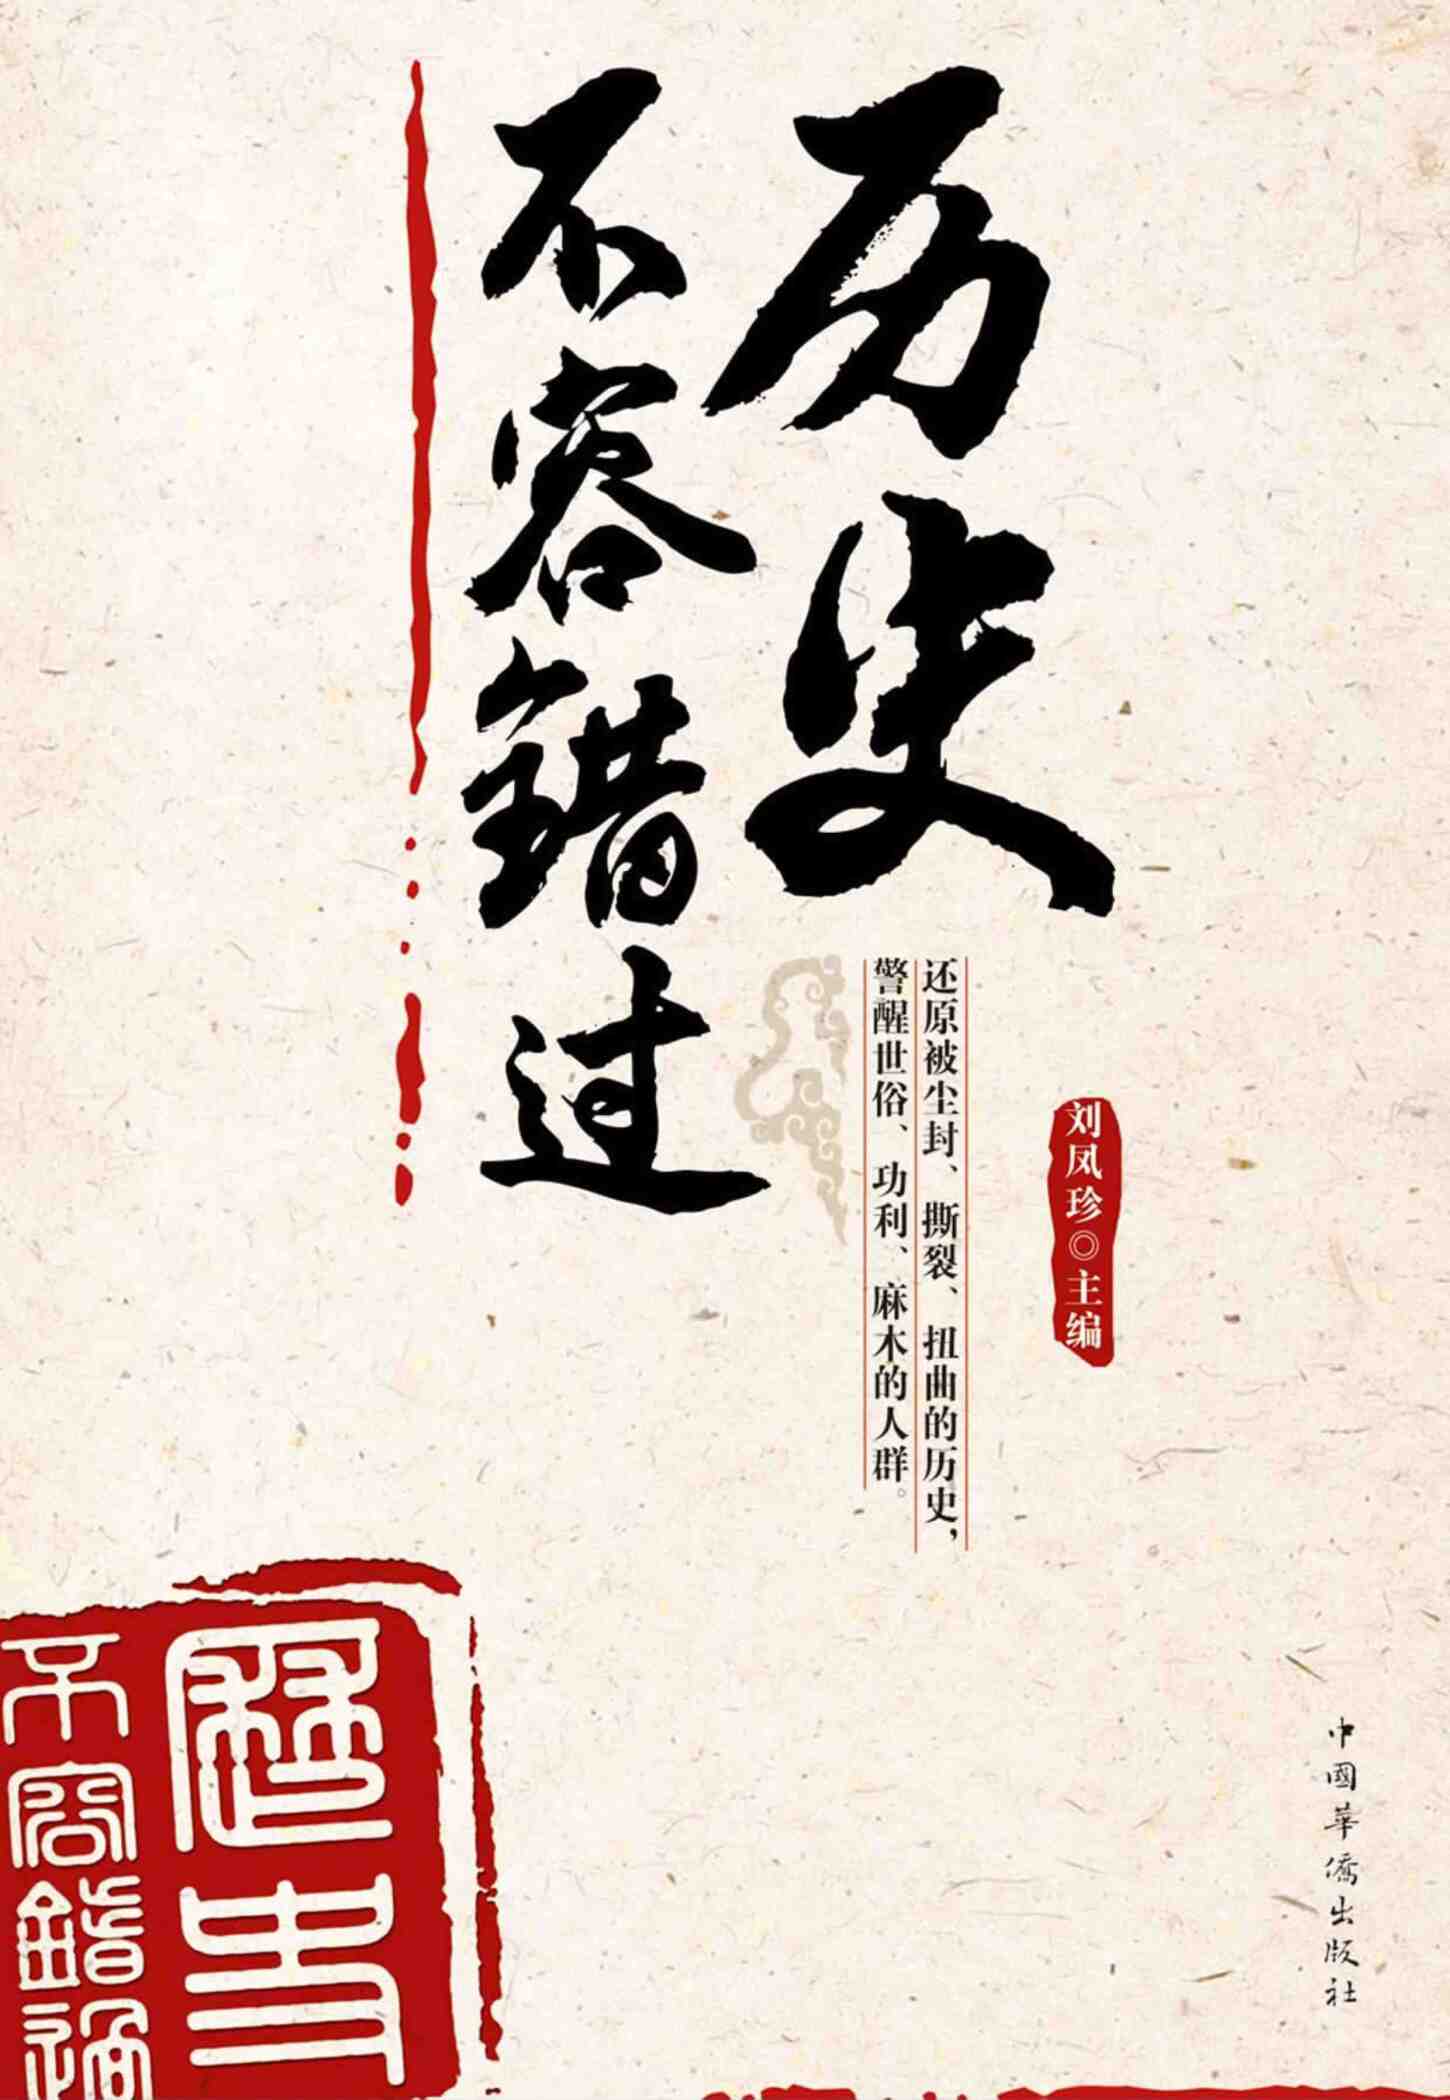 历史
不容错过
还原被尘封、撕裂、扭曲的历史，
警醒世俗、功利、麻木的人群。
刘凤珍◎主编
歷史
不容錯過
中國華僑出版社